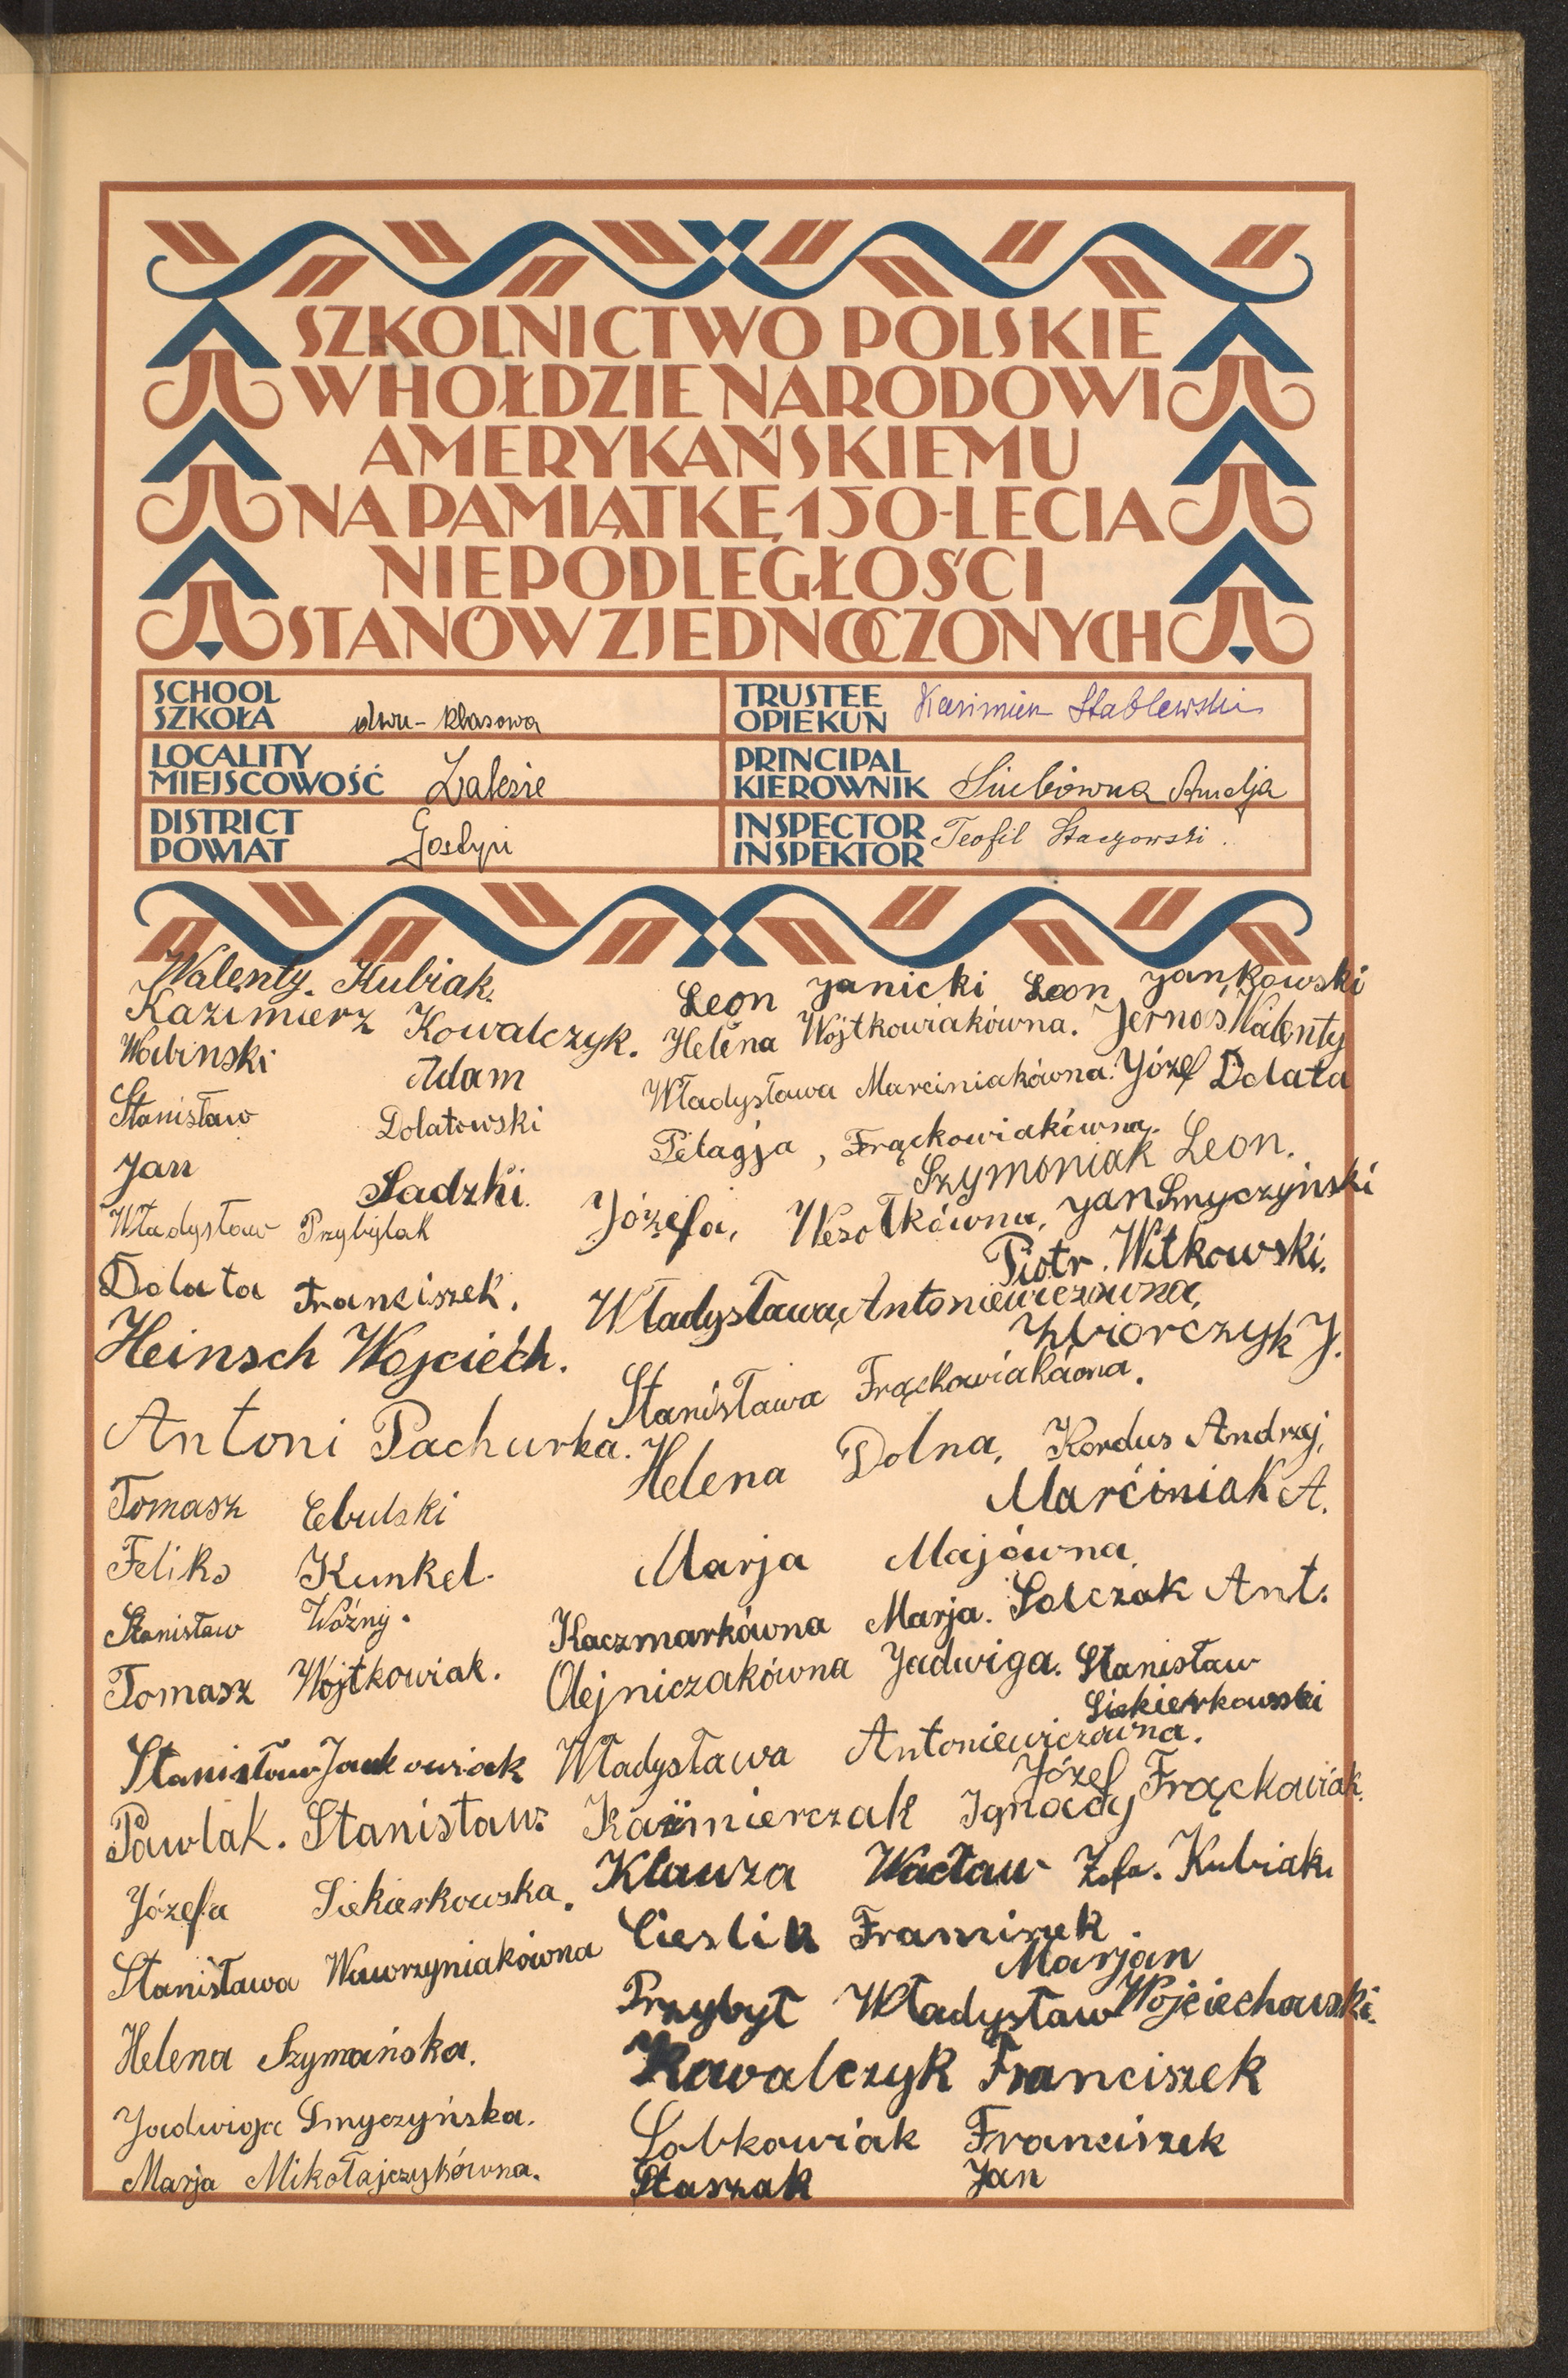 SZKOLNICTWO POLSKIE
W HOŁDZIE NARODOWI
AMERYKAŃSKIEMU
NA PAMIĄTKĘ 150-LECIA
NIEPODLEGŁOŚCI
STANÓW ZJEDNOCZONYCH
SCHOOL
SZKOŁA dwu-klasowa
TRUSTEE
OPIEKUN Kazimierz Stablewski
LOCALITY
MIEJSCOWOŚĆ Zalesie
PRINCIPAL
KIEROWNIK Amelja
DISTRICT
POWIAT Gostyń
INSPECTOR
INSPEKTOR Teofil
Walenty. Kubiak.
Kazimierz Kowalczyk.
Wabinski Adam
Stanisław Dolatowski
Jan Sadzki.
Władysław Przybylak
Dolata Franciszek.
Heinsch Wojciech.
Antoni Pachurka.
Tomasz Cebulski
Feliks Kunkel.
Stanisław Woźny.
Tomasz Wojtkowiak.
Stanisław
Pawlak. Stanisław
Józefa Siekierkowska.
Stanisława Wawrzyniakówna
Helena Szymańska.
Jadwiga Smyczyńska.
Marja Mikołajczykówna.
Leon Janicki Leon Jankowski
Helena Wojtkowiakówna. Jernoś Walenty
Władysława Marciniakówna. Józef Dolata
Pelagja, Frąckowiakówna.
Szymoniak Leon.
Józefa, Wesołkówna, Jan Smyczyński
Piotr. Witkowski.
Władysława, Antoniewiczówna,
Zbiorczyk J.
Stanisława Frąckowiakówna.
Helena Dolna, Kordus Andrzej,
Marciniak A.
Marja Majówna,
Kaczmarkówna Marja. Solczak Ant.
Olejniczakówna Jadwiga. Stanisław
Siekierkowski
Władysława Antoniewiczówna.
Józef Frąckowiak.
Kaźmierczak Ignacy
Klauza Wacław Zofa. Kubiak.
Cieslik Franciszek.
Marjan
Przybył Władysław Wojciechowski.
Kowalczyk Franciszek
Sobkowiak Franciszek
Staszak Jan